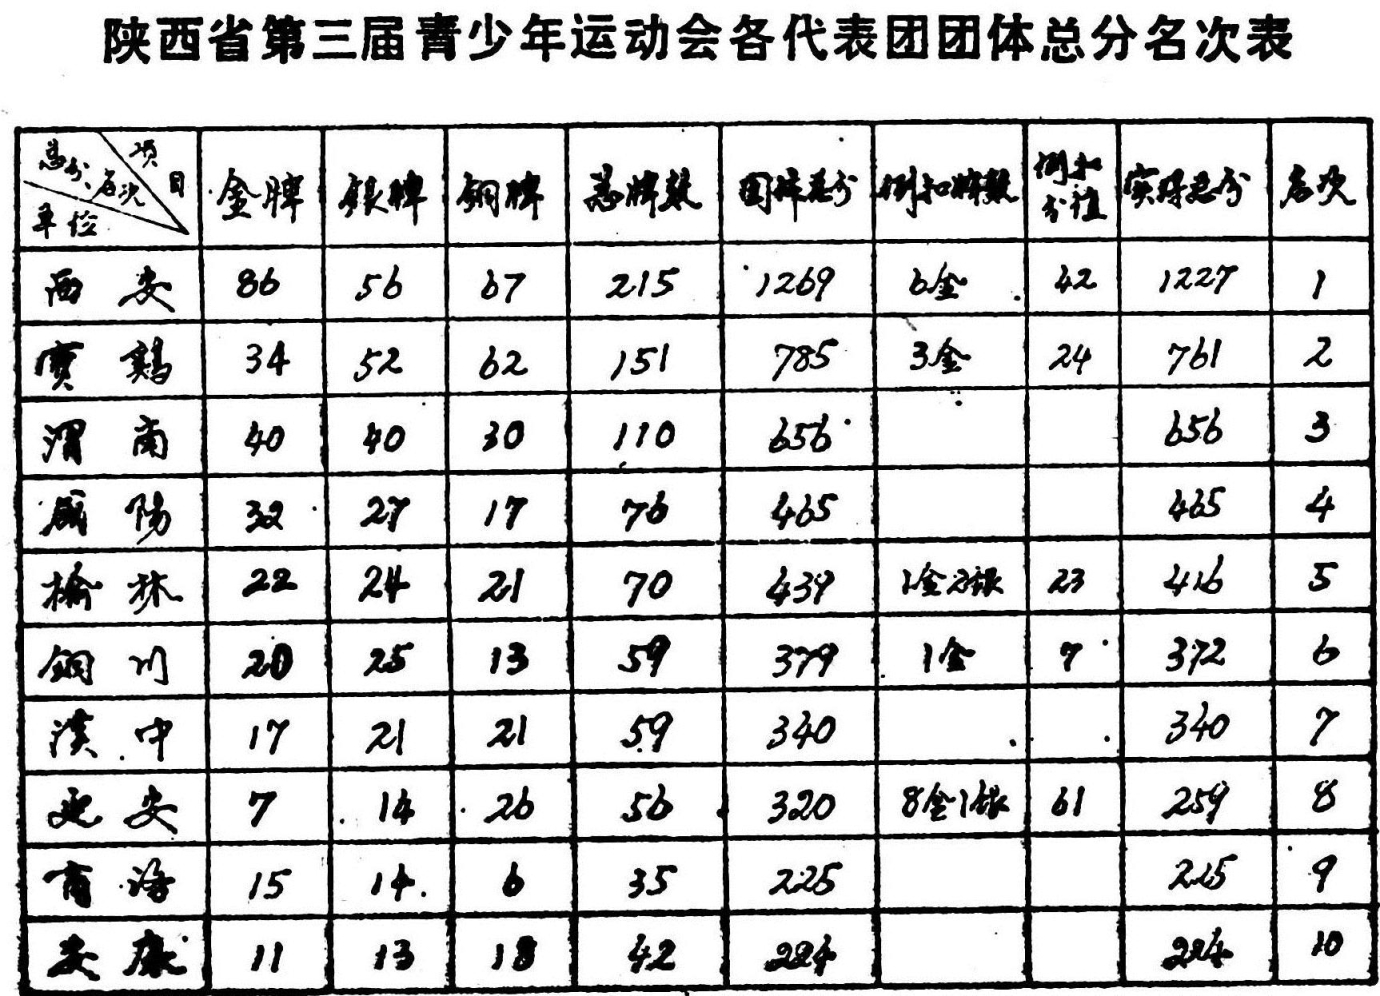 陕西省第三届青少年运动会各代表团团体总分名次表
总分、名次 项目 单位 金牌 银牌 铜牌 总牌数 团体总分 倒扣牌数 倒扣分值 实得总分 名次
西安 86 56 67 215 1269 6金 42 1227 1
寳鷄 34 52 62 151 785 3金 24 761 2
渭南 40 40 30 110 656 656 3
咸阳 32 27 17 76 465 465 4
榆林 22 24 21 70 439 1金2银 23 416 5
铜川 20 25 13 59 379 1金 7 372 6
漢中 17 21 21 59 340 340 7
延安 7 14 26 56 320 8金1银 61 259 8
商洛 15 14 6 35 225 225 9
安康 11 13 18 42 224 224 10